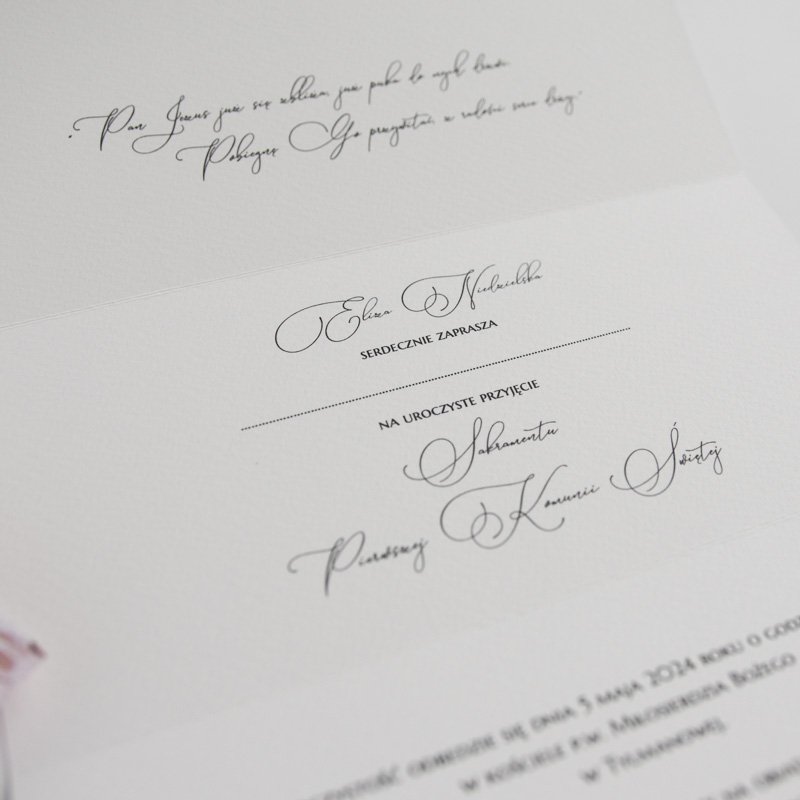 "Pan Jezus już się zbliża, już puka do mych drzwi.
Pobiegnę Go przywitać, z radości serce drży."
Eliza Niedzielska
SERDECZNIE ZAPRASZA
NA UROCZYSTE PRZYJĘCIE
Sakramentu
Pierwszej Komunii Świętej
ODBĘDZIE SIĘ DNIA 5 MAJA 2024 ROKU O GODZ
W KOŚCIELE P.W. MIŁOSIERDZIA BOŻEGO
W TYLMANOWEJ.